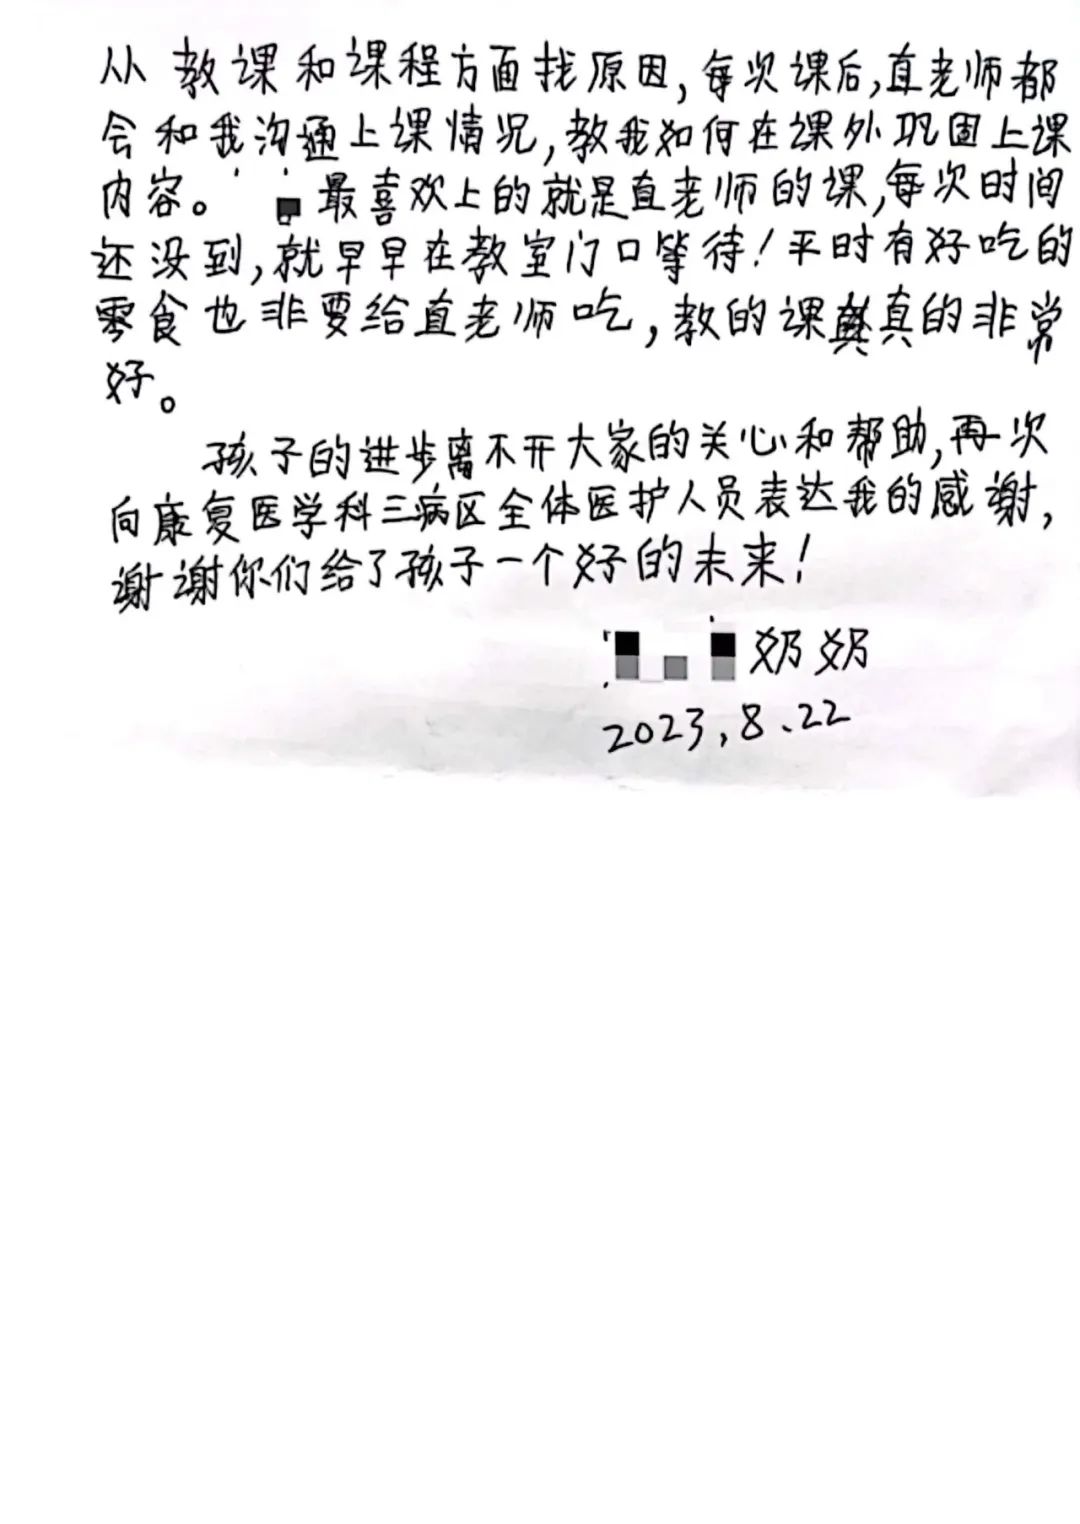 从教课和课程方面找原因,每次课后,直老师都
会和我沟通上课情况,教我如何在课外巩固上课
内容。最喜欢上的就是直老师的课,每次时间
还没到,就早早在教室门口等待!平时有好吃的
零食也非要给直老师吃,教的课真的非常
好。
孩子的进步离不开大家的关心和帮助,再次
向康复医学科三病区全体医护人员表达我的感谢,
谢谢你们给了孩子一个好的未来!
奶奶
2023.8.22